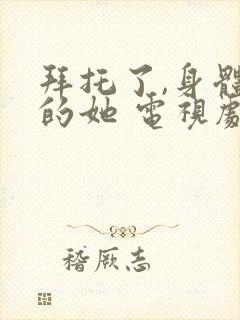 拜托了,身體
的她 電視劇
稽厥志